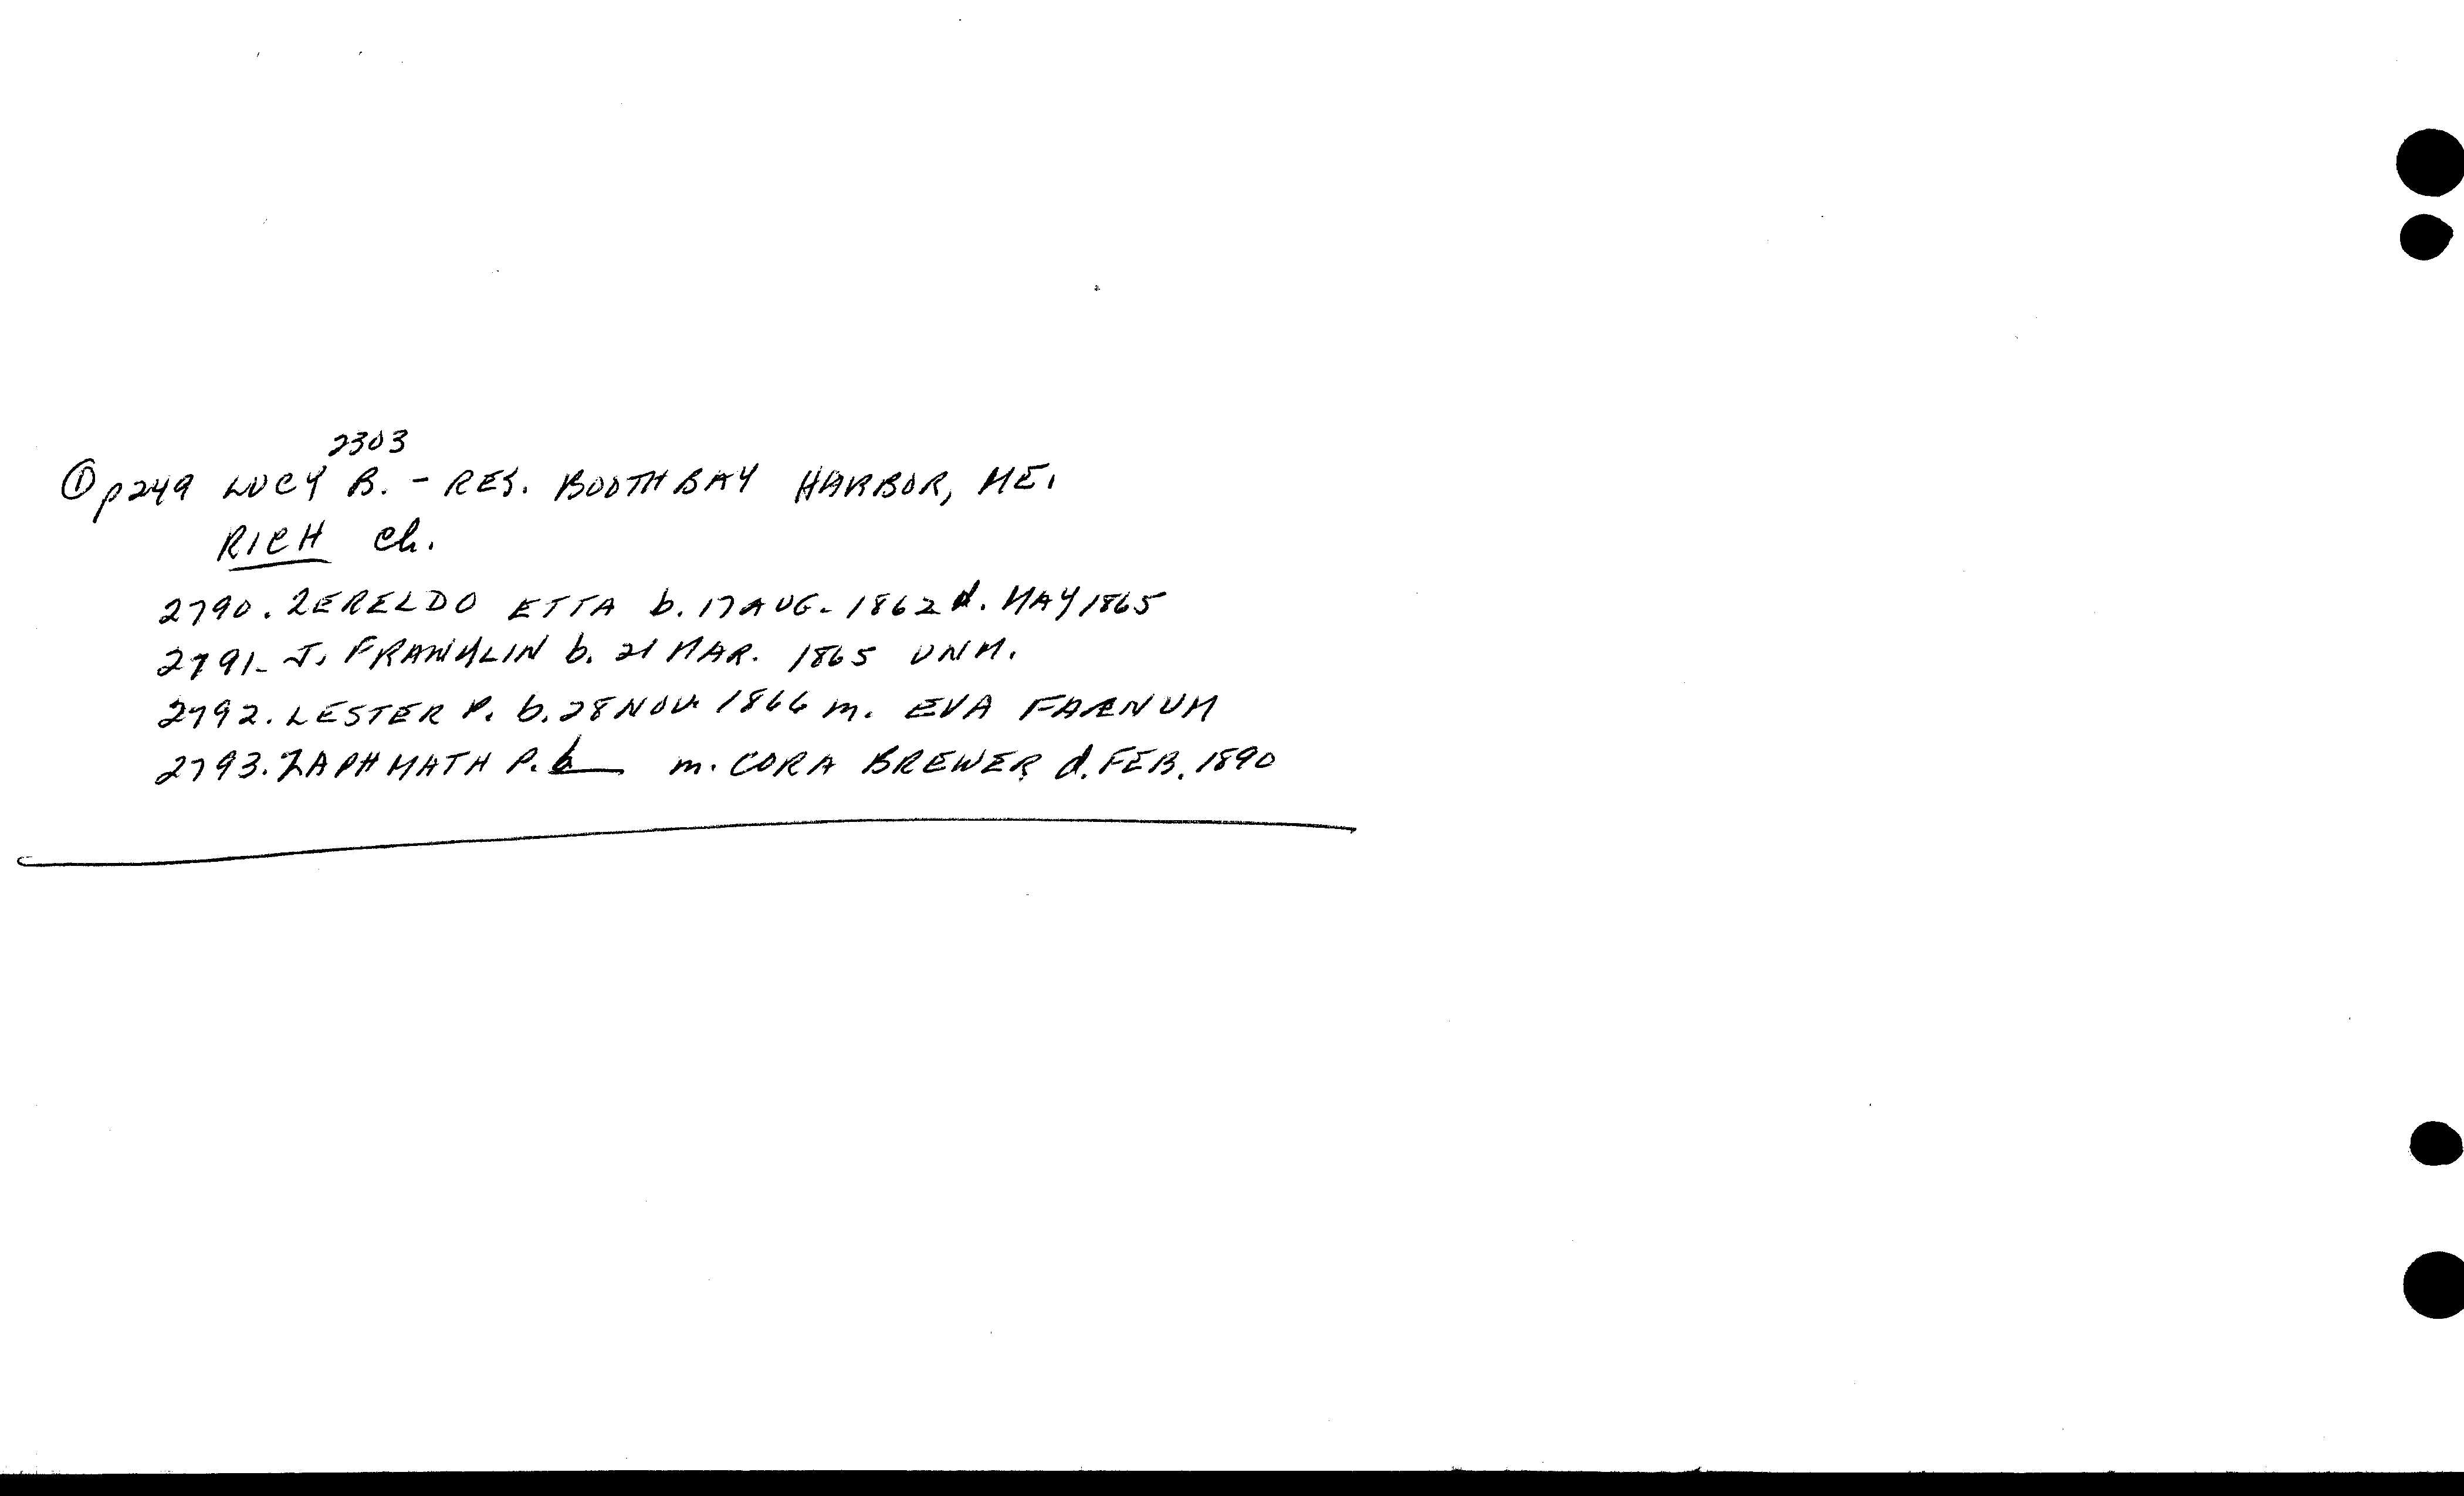 2303
① p249 LUCY B. - RES. BOOTHBAY HARBOR, ME.
RICH ch.
2790. ZERELDO ETTA b. 17 AUG. 1862 d. MAY 1865
2791- J. FRANKLIN b. 21 MAR. 1865 UNM.
2792. LESTER P. b. 28 NOV. 1866 m. EVA FARNUM
2793. ZAPHMATH P. b___ m. CORA BREWER d. FEB. 1890